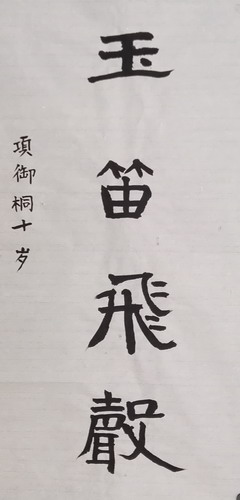 玉笛飛聲
項御桐十岁